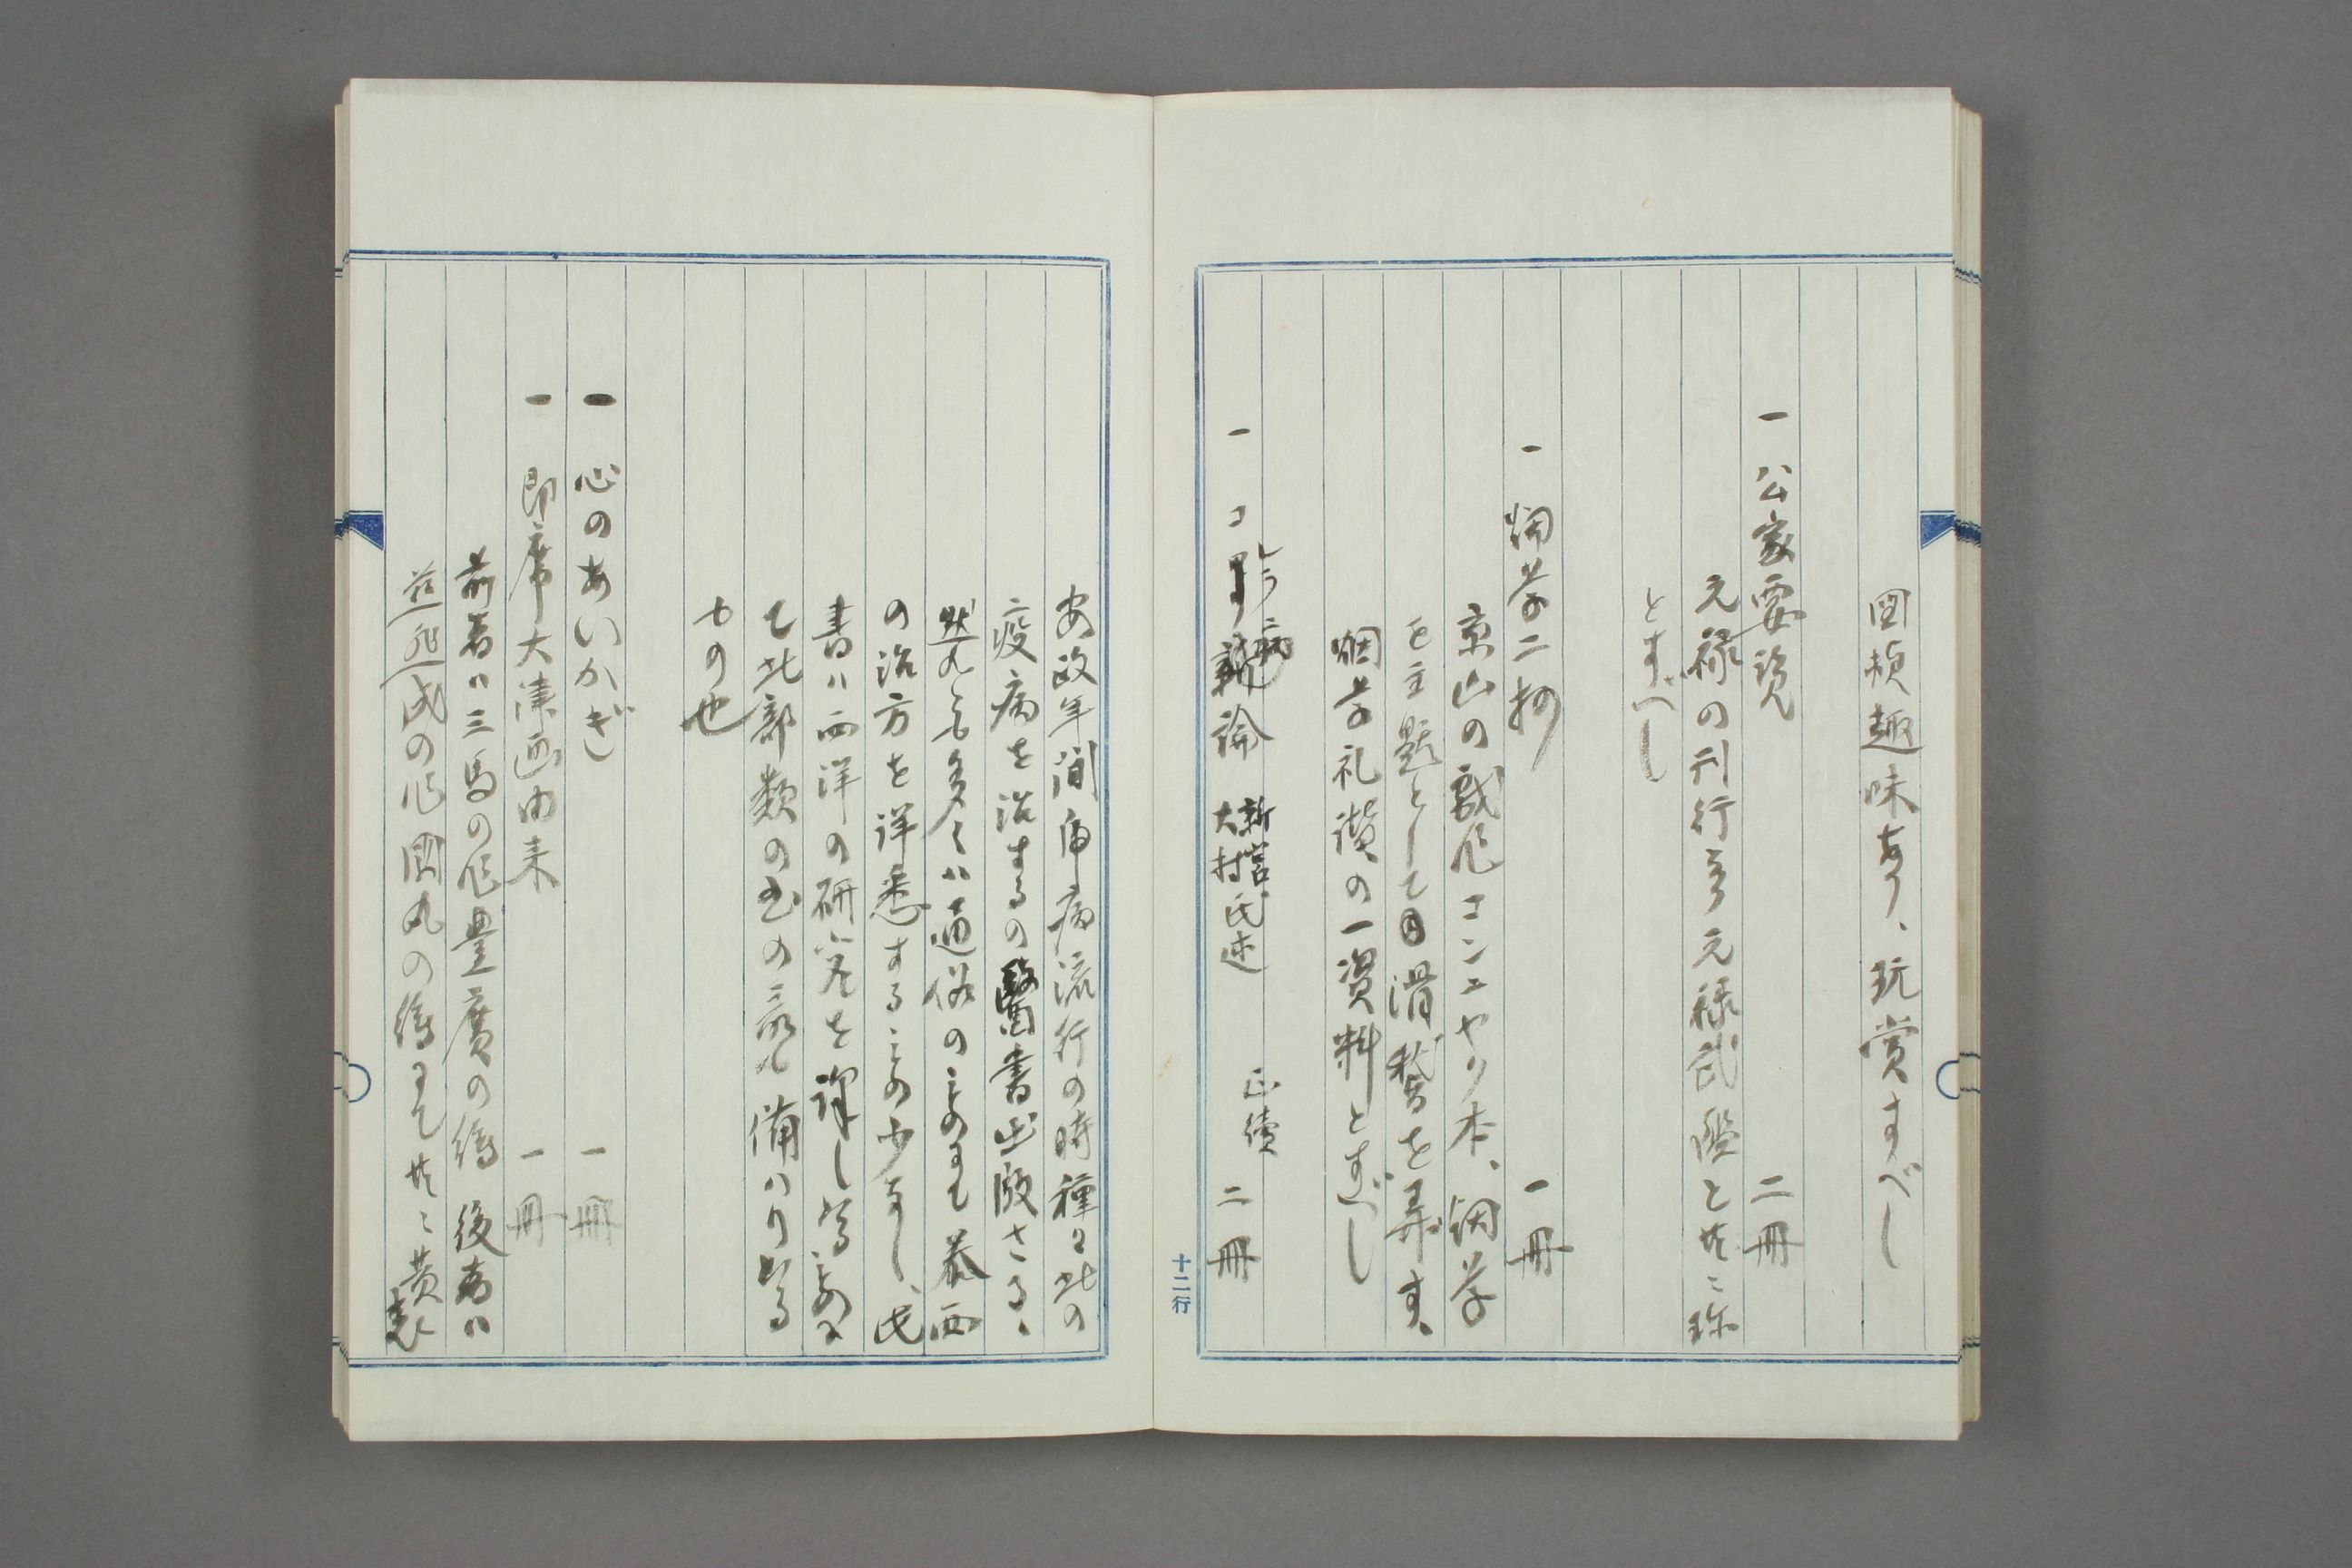 図様趣味あり、玩賞すべし
一 公家要覧 二冊
元禄の刊行 元禄武鑑と共ニ珍
とすべし
一 烟草二抄 一冊
京山の戯作コンニヤク本、烟草
を主題として滑稽を弄す、
烟草礼讃の一資料とすべし
一 コレラ病論 新宮 大村氏述 正續 二冊
十二行
安政年間虎病流行の時種々此の
疫病を治するの醫書出版さる、
然れども多くハ通俗のもの 泰西
の治方を詳悉するもの少なし、此
書ハ西洋の研究を譯し
て此部類の書の 備ハり
もの也
一 心のあいかぎ 一冊
一 即席大津画由来 一冊
前者ハ三馬の作豊廣の繪 後者ハ
成の作國丸の繪 共ニ黄表